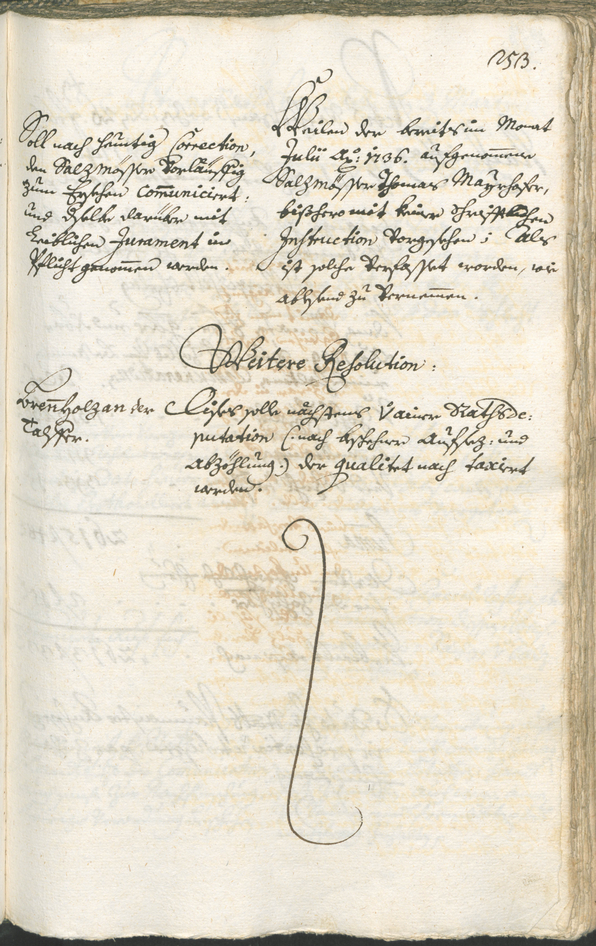 253.
Soll nach heuntig Correction,
dem Salzmösser vorläuffig
zum Ersehen com̄uniciert:
und dselbe darüber mit
Leiblichen Jurament in
Pflicht genommen werden.
Weilen der bereits im Monat
Julii Aō: 1736. aufgenomene
Salzmösser Thomas Mayrhofer,
bishero mit keiner schrifftlichen
Instruction vorgesehen; Als
ist solche verfasset worden, wie
ablesend zu vernemmen.
Weitere Resolution:
Brenholz an der
Talffer.
Dises solle nächstens v ainer Rathsde:
putation (: nach beschehner aufsez: und
abzöhlung:) der qualitet nach taxiert
werden.